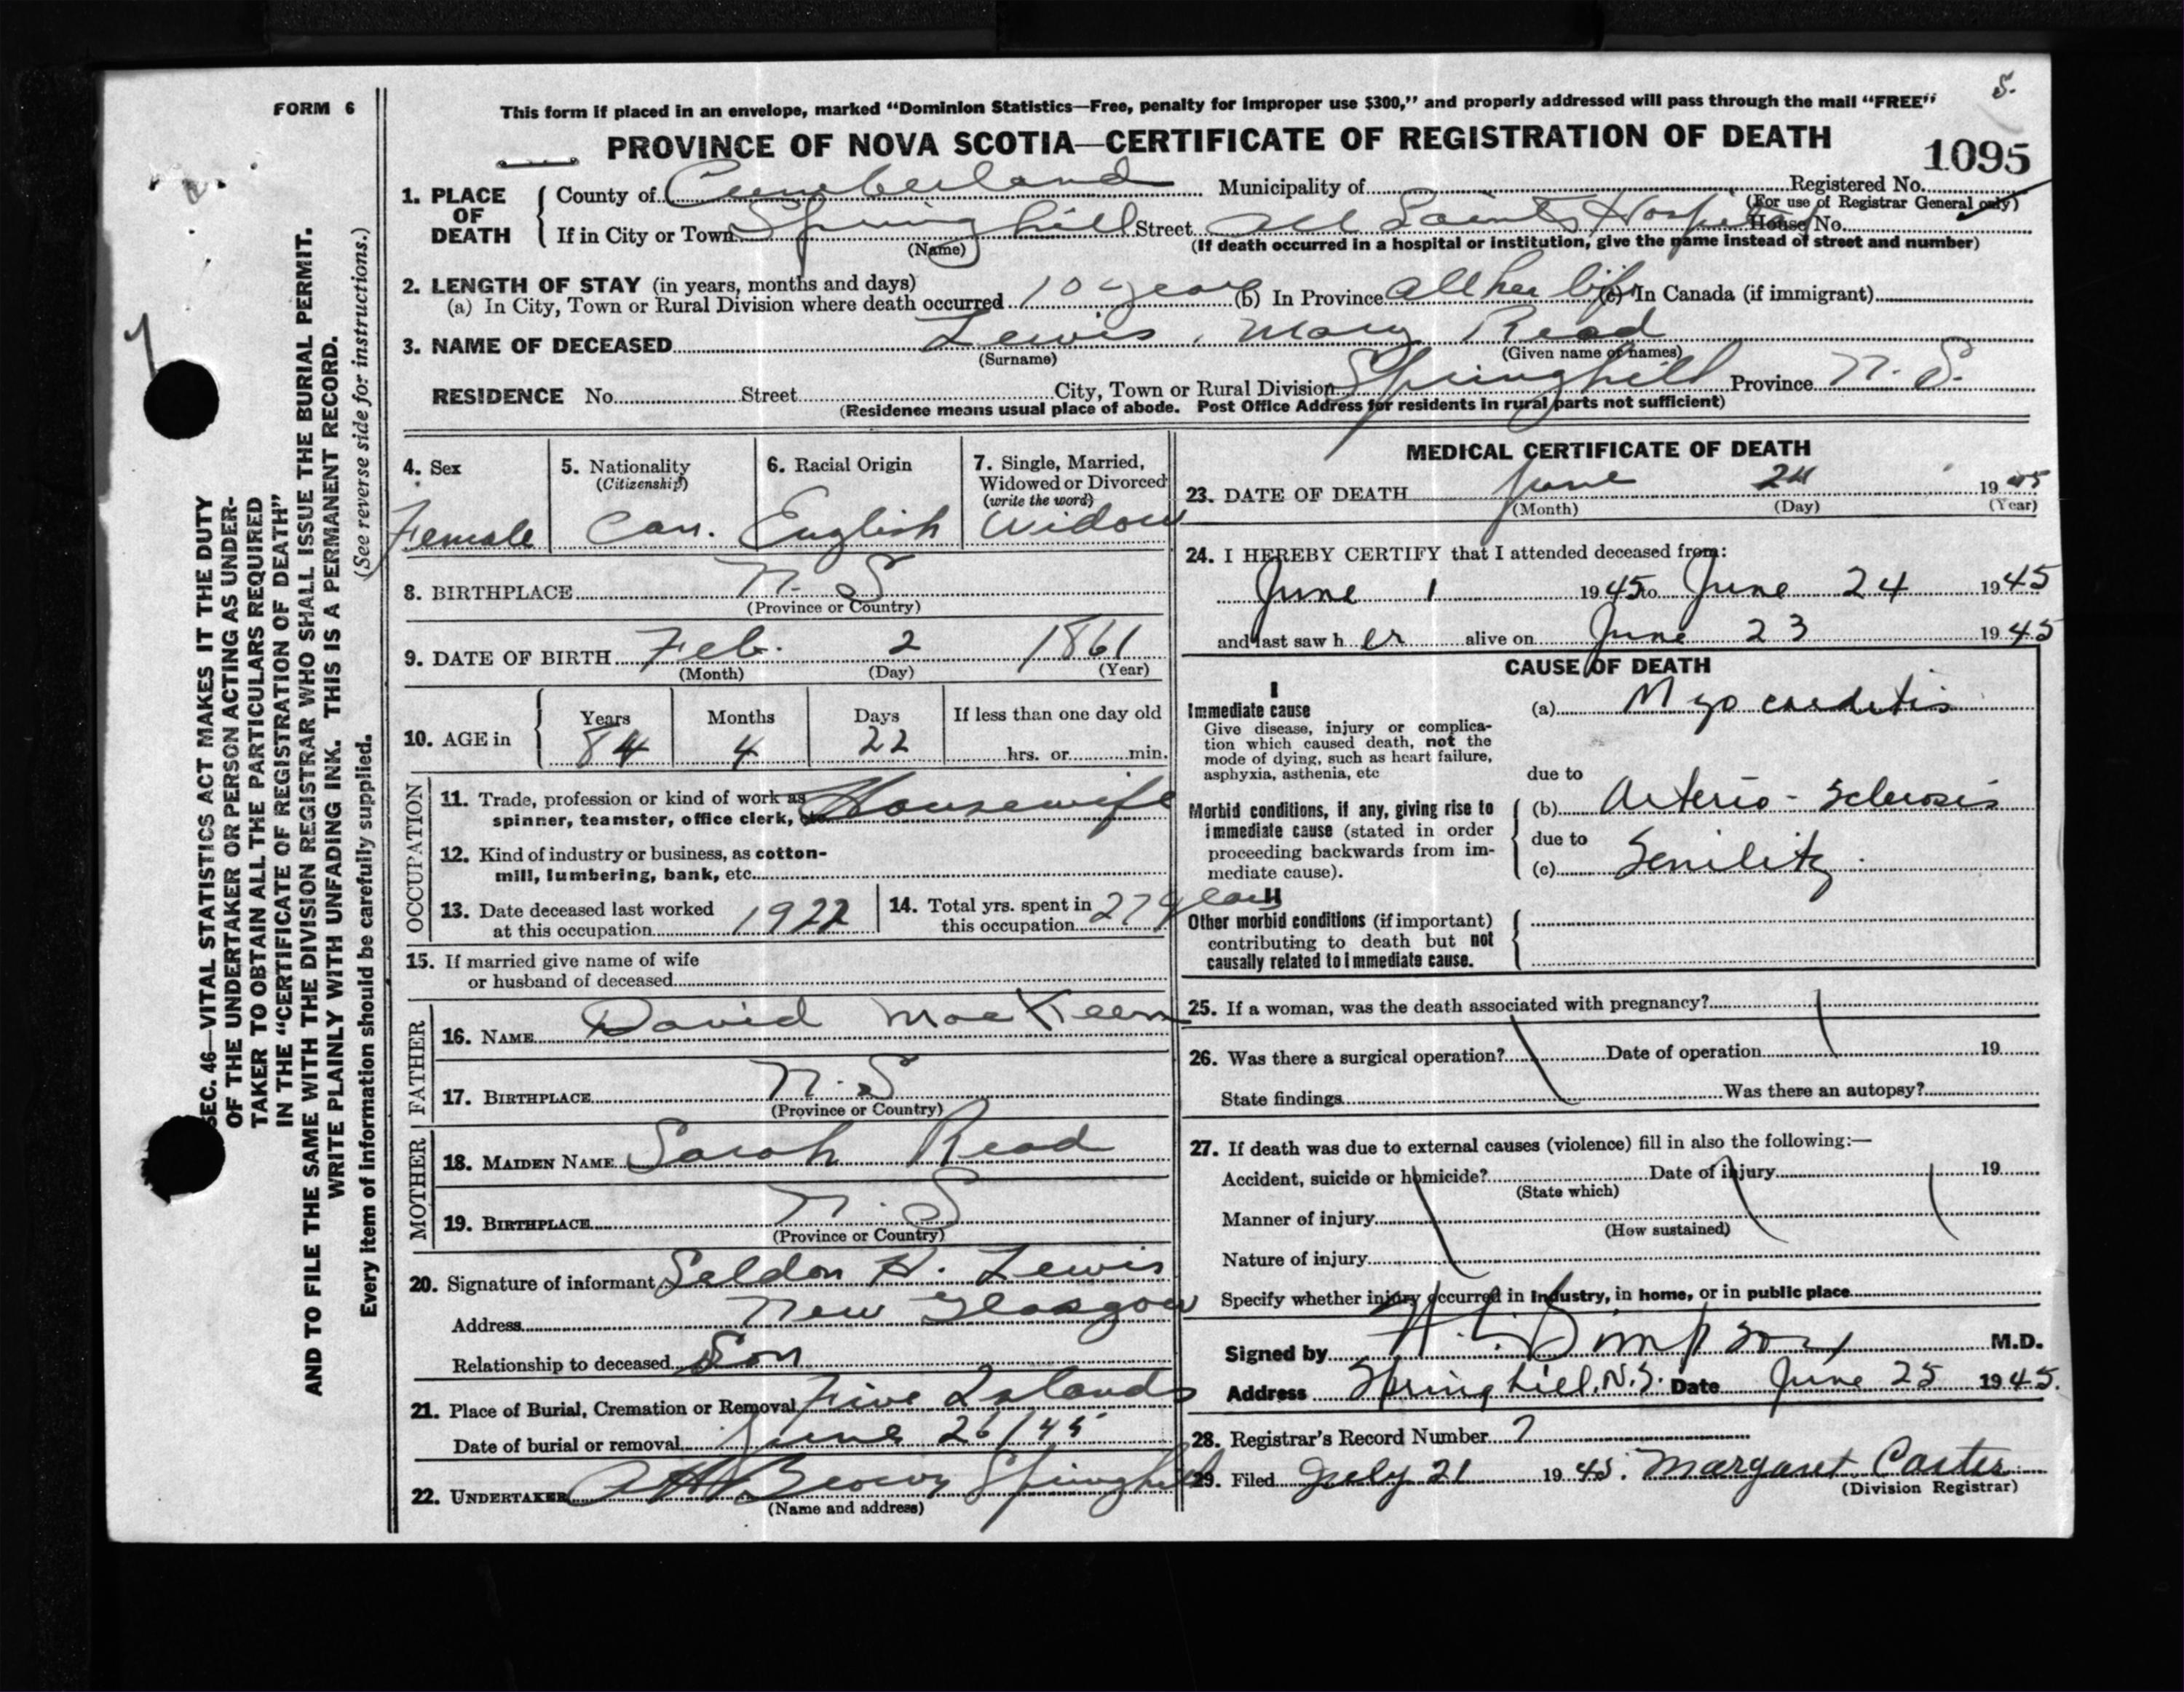 S.
FORM 6
This form if placed in an envelope, marked "Dominion Statistics—Free, penalty for improper use $300," and properly addressed will pass through the mail "FREE"
PROVINCE OF NOVA SCOTIA—CERTIFICATE OF REGISTRATION OF DEATH
1095
1. PLACE OF DEATH
County of Cumberland Municipality of Registered No.
(For use of Registrar General only)
If in City or Town Springhill Street All Saints Hospital House No.
(Name) (If death occurred in a hospital or institution, give the name instead of street and number)
2. LENGTH OF STAY (in years, months and days)
(a) In City, Town or Rural Division where death occurred 10 years (b) In Province All her life (c) In Canada (if immigrant)
3. NAME OF DECEASED Lewis, Mary Read
(Surname) (Given name or names)
RESIDENCE No. Street City, Town or Rural Division Springhill Province N. S.
(Residence means usual place of abode. Post Office Address for residents in rural parts not sufficient)
4. Sex
Female
5. Nationality
(Citizenship)
Can.
6. Racial Origin
English
7. Single, Married, Widowed or Divorced
(write the word)
Widow
8. BIRTHPLACE N. S
(Province or Country)
9. DATE OF BIRTH Feb. 2 1861
(Month) (Day) (Year)
10. AGE in
Years Months Days If less than one day old
84 4 22 hrs. or min.
OCCUPATION
11. Trade, profession or kind of work as Housewife
spinner, teamster, office clerk, etc.
12. Kind of industry or business, as cotton-
mill, lumbering, bank, etc.
13. Date deceased last worked
at this occupation 1922
14. Total yrs. spent in
this occupation 27 years
15. If married give name of wife
or husband of deceased
FATHER
16. NAME David MacKeen
17. BIRTHPLACE N. S
(Province or Country)
MOTHER
18. MAIDEN NAME Sarah Read
19. BIRTHPLACE N. S
(Province or Country)
20. Signature of informant Seldon H. Lewis
Address New Glasgow
Relationship to deceased Son
21. Place of Burial, Cremation or Removal Five Islands
Date of burial or removal June 26/45
22. UNDERTAKER Brown Springhill
(Name and address)
MEDICAL CERTIFICATE OF DEATH
23. DATE OF DEATH June 24 1945
(Month) (Day) (Year)
24. I HEREBY CERTIFY that I attended deceased from:
June 1 1945 to June 24 1945
and last saw her alive on June 23 1945
CAUSE OF DEATH
I
Immediate cause
Give disease, injury or complica-
tion which caused death, not the
mode of dying, such as heart failure,
asphyxia, asthenia, etc
(a) Myocarditis
due to
Morbid conditions, if any, giving rise to
immediate cause (stated in order
proceeding backwards from im-
mediate cause).
(b) Arterio-Sclerosis
due to
(c) Senility.
II
Other morbid conditions (if important)
contributing to death but not
causally related to immediate cause.
25. If a woman, was the death associated with pregnancy?
26. Was there a surgical operation? Date of operation 19
State findings Was there an autopsy?
27. If death was due to external causes (violence) fill in also the following:—
Accident, suicide or homicide? Date of injury 19
(State which)
Manner of injury
(How sustained)
Nature of injury
Specify whether injury occurred in industry, in home, or in public place
Signed by Simpson M.D.
Address Springhill, N.S. Date June 25 1945.
28. Registrar's Record Number 7
29. Filed July 21 1945. Margaret Carter
(Division Registrar)
SEC. 46—VITAL STATISTICS ACT MAKES IT THE DUTY
OF THE UNDERTAKER OR PERSON ACTING AS UNDER-
TAKER TO OBTAIN ALL THE PARTICULARS REQUIRED
IN THE "CERTIFICATE OF REGISTRATION OF DEATH"
AND TO FILE THE SAME WITH THE DIVISION REGISTRAR WHO SHALL ISSUE THE BURIAL PERMIT.
WRITE PLAINLY WITH UNFADING INK. THIS IS A PERMANENT RECORD.
Every item of information should be carefully supplied. (See reverse side for instructions.)